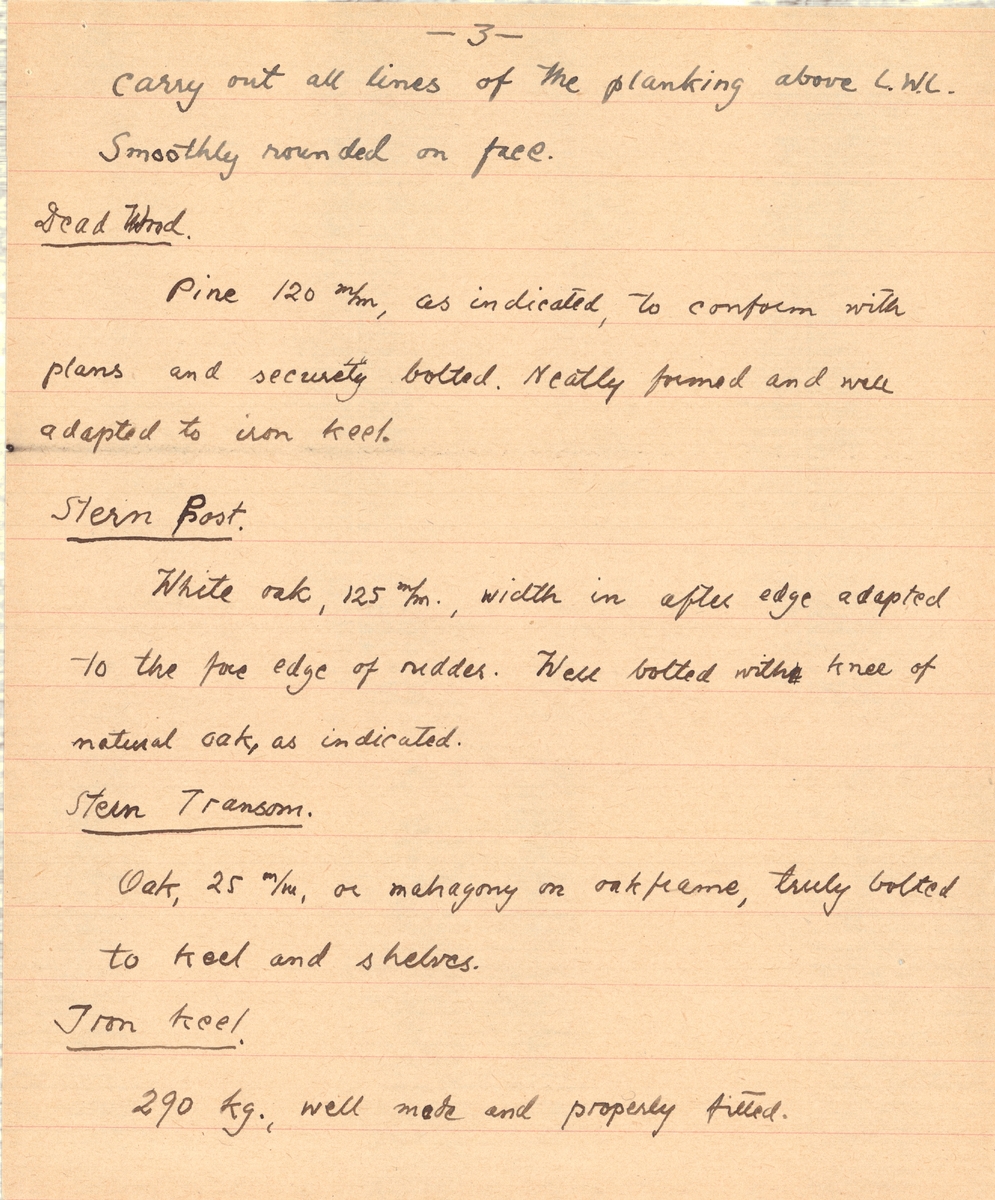 -3-
carry out all lines of the planking above L.W.L.
Smoothly rounded on face.
Dead Wood.
Pine 120 m/m, as indicated, to conform with
plans and securety bolted. Neatly formed and well
adapted to iron keel.
Stern Post.
White oak, 125 m/m., width in after edge adapted
to the fore edge of rudder. Well bolted with knee of
natural oak, as indicated.
Stern Transom.
Oak, 25 m/m, or mahagony on oak frame, truly bolted
to keel and shelves.
Iron keel.
290 kg., well made and properly fitted.